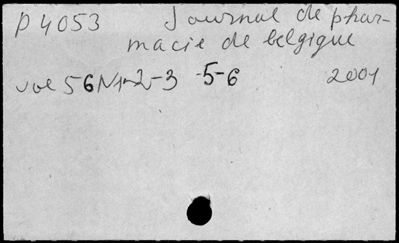 P 4053 Journal de phar-
macie de belgique
vol 56 N1-2-3 -5-6 2001